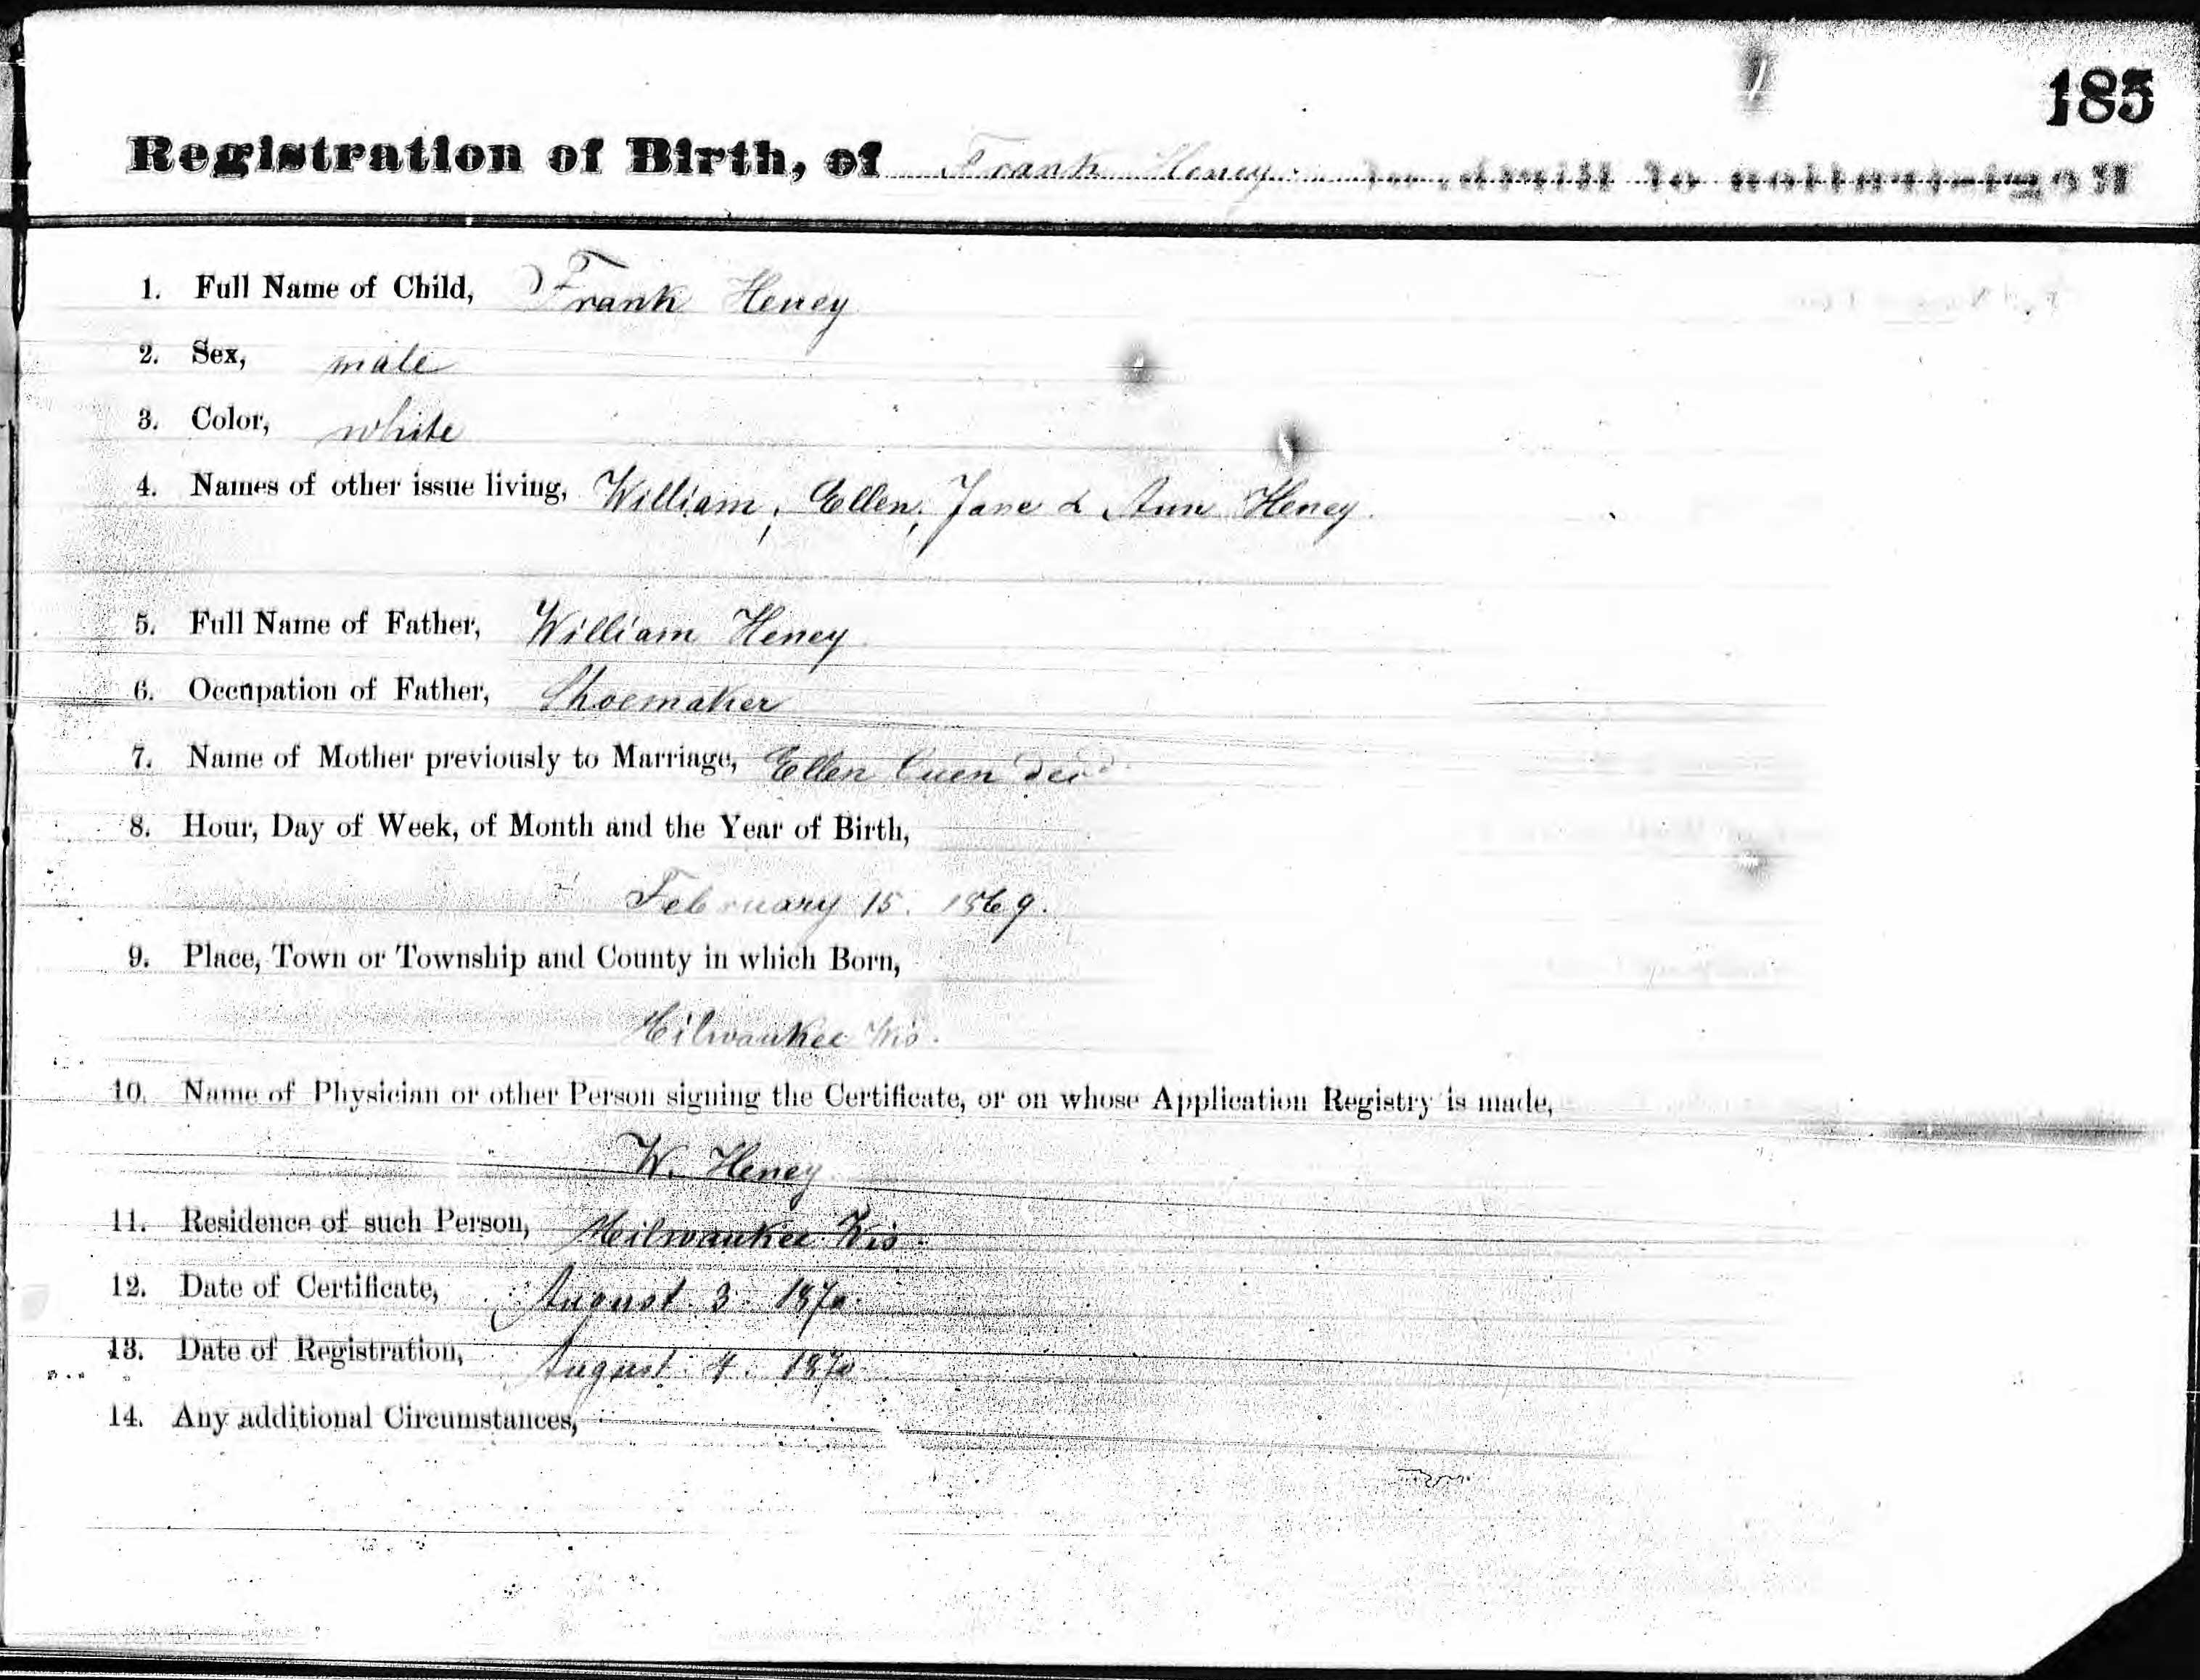 185
Registration of Birth, of Frank Heney.
1. Full Name of Child, Frank Heney
2. Sex, male
3. Color, white
4. Names of other issue living, William, Ellen, Jane & Ann Heney.
5. Full Name of Father, William Heney
6. Occupation of Father, Shoemaker
7. Name of Mother previously to Marriage, Ellen
8. Hour, Day of Week, of Month and the Year of Birth,
February 15. 1869.
9. Place, Town or Township and County in which Born,
Milwaukee Wis.
10. Name of Physician or other Person signing the Certificate, or on whose Application Registry is made,
W. Heney.
11. Residence of such Person, Milwaukee Wis.
12. Date of Certificate, August 3. 1870.
13. Date of Registration, August 4. 1870
14. Any additional Circumstances,